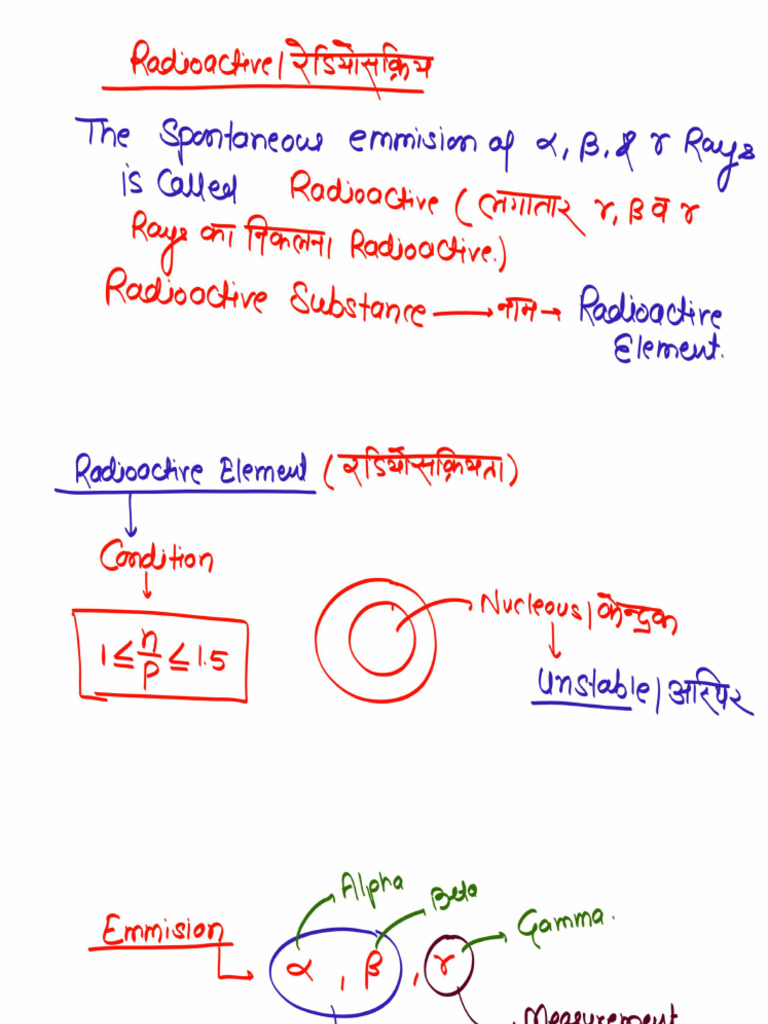 Radioactive/रेडियोसक्रिय
The Spontaneous emmision of α, β, & r Rays
is Called Radioactive (लगातार r, β व r
Rays का निकलना Radioactive.)
Radioactive Substance → नाम → Radioactive
Element.
Radioactive Element (रडियोसक्रियता)
Condition
1 ≤ n/p ≤ 1.5
Nucleous/केन्द्रक
Unstable/अस्थिर
Alpha
Beta
Gamma.
Emmision
α, β, r
Measurement